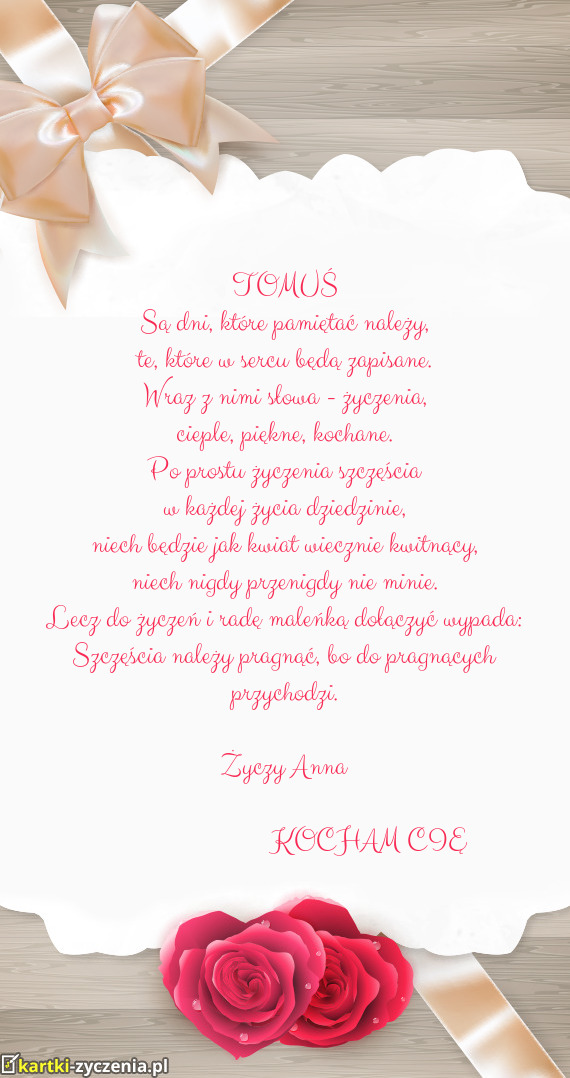 TOMUŚ
Są dni, które pamiętać należy,
te, które w sercu będą zapisane.
Wraz z nimi słowa - życzenia,
ciepłe, piękne, kochane.
Po prostu życzenia szczęścia
w każdej życia dziedzinie,
niech będzie jak kwiat wiecznie kwitnący,
niech nigdy przenigdy nie minie.
Lecz do życzeń i radę maleńką dołączyć wypada:
Szczęścia należy pragnąć, bo do pragnących
przychodzi.
Życzy Anna
KOCHAM CIĘ
kartki-zyczenia.pl